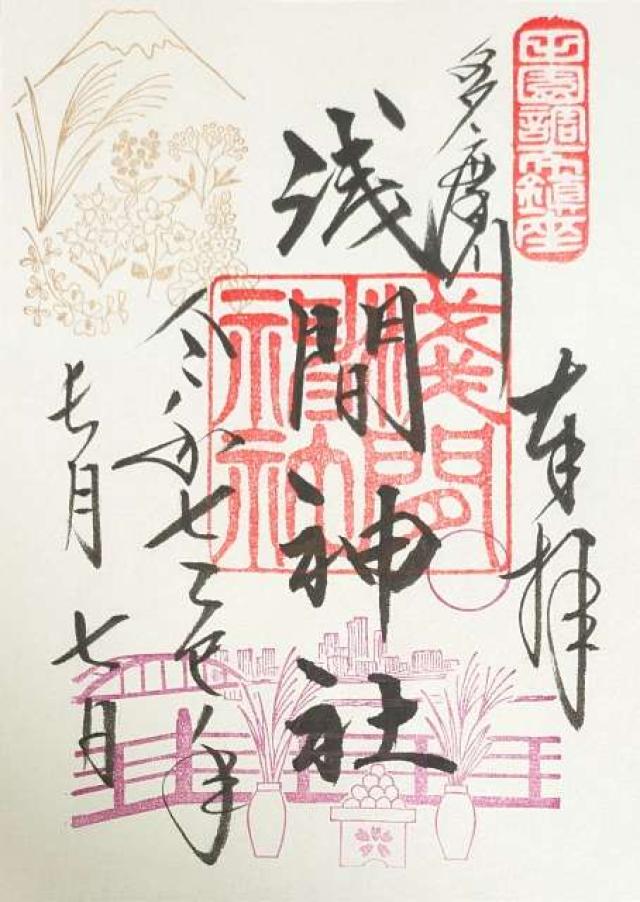 田園調布鎮座
奉拝
多摩川
浅間神社
淺間神社
令和七乙巳年
七月七日